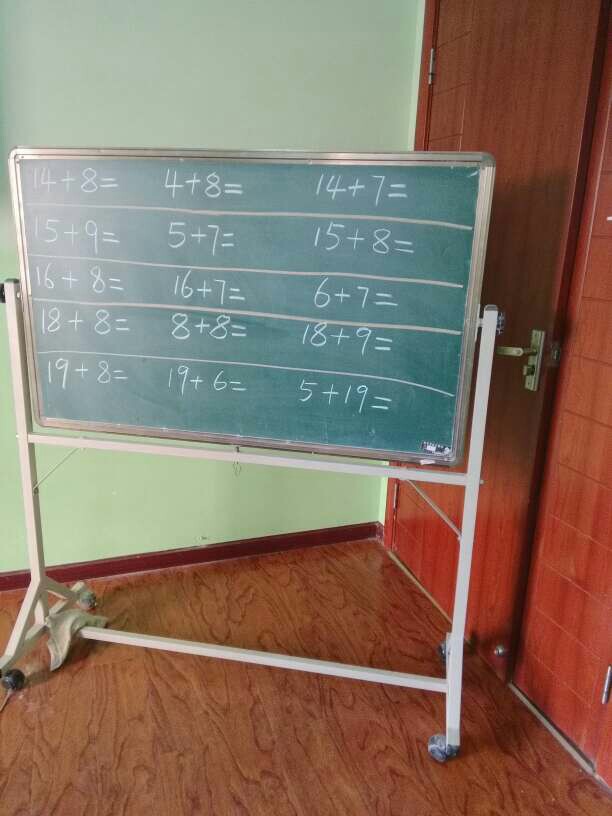 14+8= 4+8= 14+7=
15+9= 5+7= 15+8=
16+8= 16+7= 6+7=
18+8= 8+8= 18+9=
19+8= 19+6= 5+19=